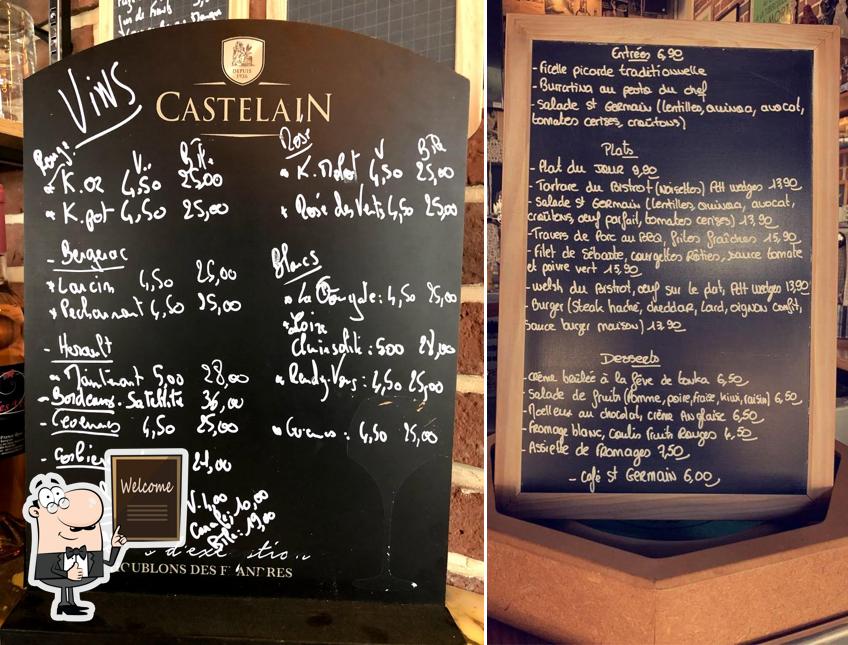 Vins
DEPUIS
1926
CASTELAIN
Rouge
V.. Btl.
K.oz 4,50 25,00
K.pot 4,50 25,00
- Bergerac
4,50 25,00
Pécharmant 4,50 25,00
- Herault
Maintenant 5,00 28,00
- Bordeaux. Satellite 36,00
- Cevennes 4,50 25,00
- Corbières 21,00
V. 4,00
10,00
19,00
Rosé
V Btl.
4,50 25,00
Rosé des Vents 4,50 25,00
Blancs
4,50 25,00
Loire
500 28,00
Rendez-Vous: 4,50 25,00
4,50 25,00
HOUBLONS DES FLANDRES
Welcome
Entrées 6,90
- Ficelle picarde traditionnelle
- Burratina au pesto du chef
- Salade St Germain (lentilles, quinoa, avocat,
tomates cerises, croûtons)
Plats
- Plat du JOUR 9,90
- Tartare du Bistrot (noisettes) Pdt wedges 13,90
- Salade St Germain (lentilles, quinoa, avocat,
croûtons, œuf parfait, tomates cerises) 13,90
- Travers de Porc au BBQ, frites fraîches 15,90
- Filet de Sébaste, courgettes rôties, sauce tomate
et poivre vert 15,90
- Welsh du Bistrot, œuf sur le plat, Pdt wedges 13,90
- Burger (steak haché, cheddar, lard, oignon confit,
sauce burger maison) 13,90
Desserts
- Crème brûlée à la fève de tonka 6,50
- Salade de fruits (Pomme, poire, fraise, kiwi, raisin) 6,50
- Moelleux au chocolat, crème Anglaise 6,50
- Fromage blanc, coulis fruits Rouges 4,50
- Assiette de fromages 7,50
- café St Germain 6,00